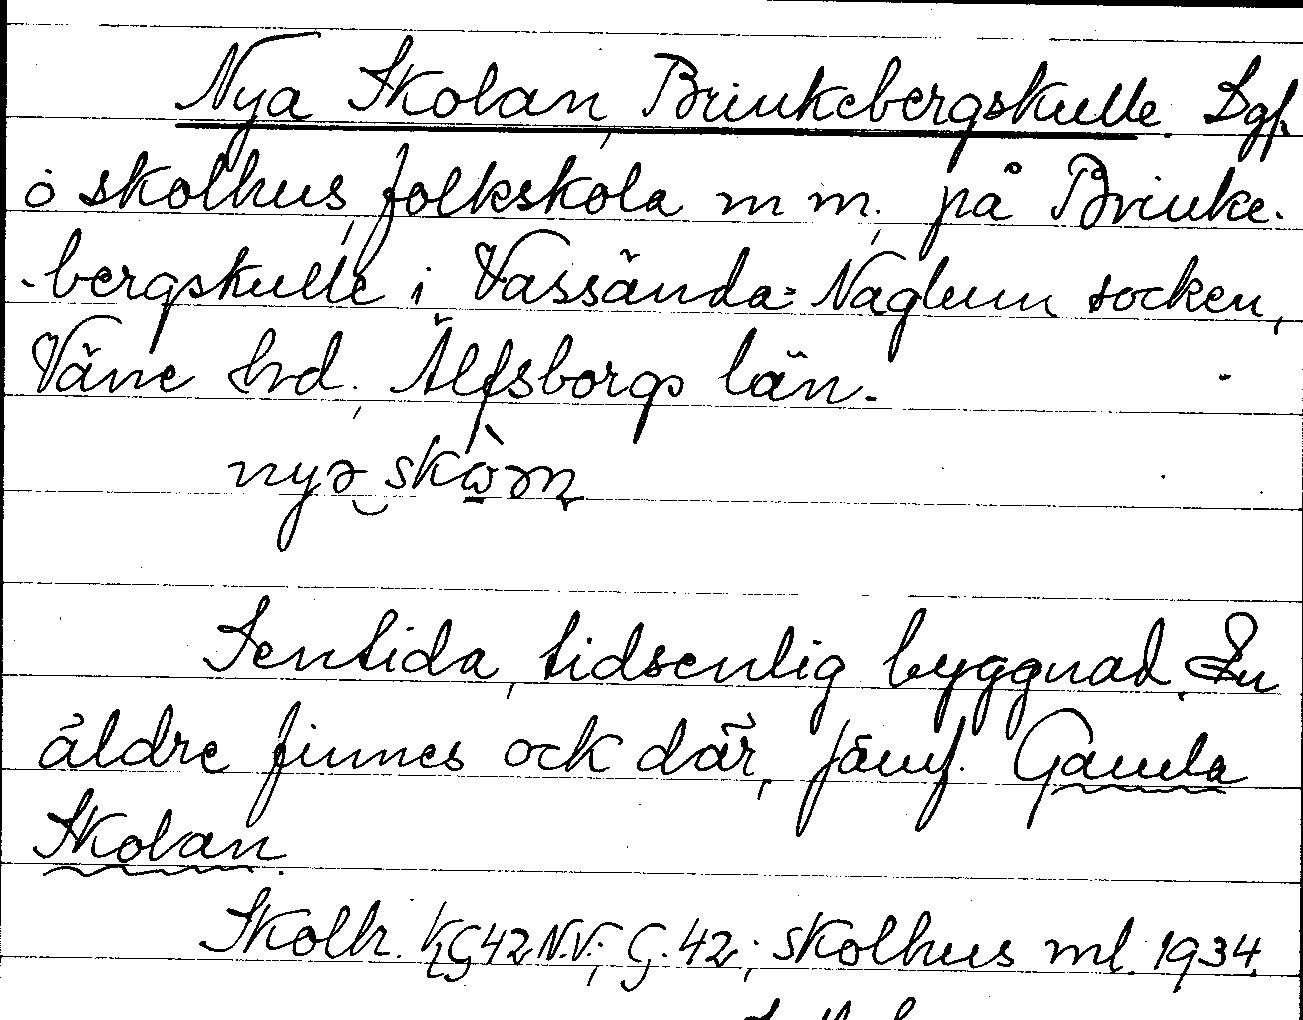 Nya Skolan, Brinkebergskulle. Lgf.
o skolhus, folkskola m m, på Brinke-
-bergskulle i Vassända-Naglum socken,
Väne hrd, Älfsborgs län.
Sentida, tidsenlig byggnad. En
äldre finnes ock där, jämf. Gamla
Skolan.
Skolhr. KG42 N.V.; G. 42; skolhus ml. 1934.